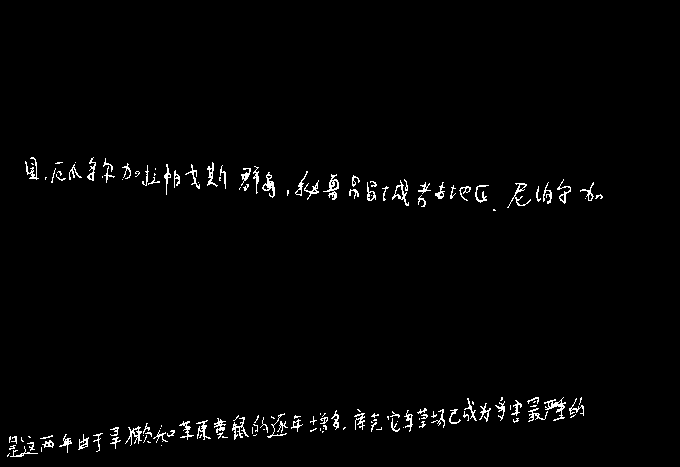 县,厄瓜多尔加拉帕戈斯群岛,秘鲁昌昌城考古地区、尼泊尔加
是这两年由于旱獭和草原黄鼠的逐年增多,库克它乌草场已成为虫害最严重的